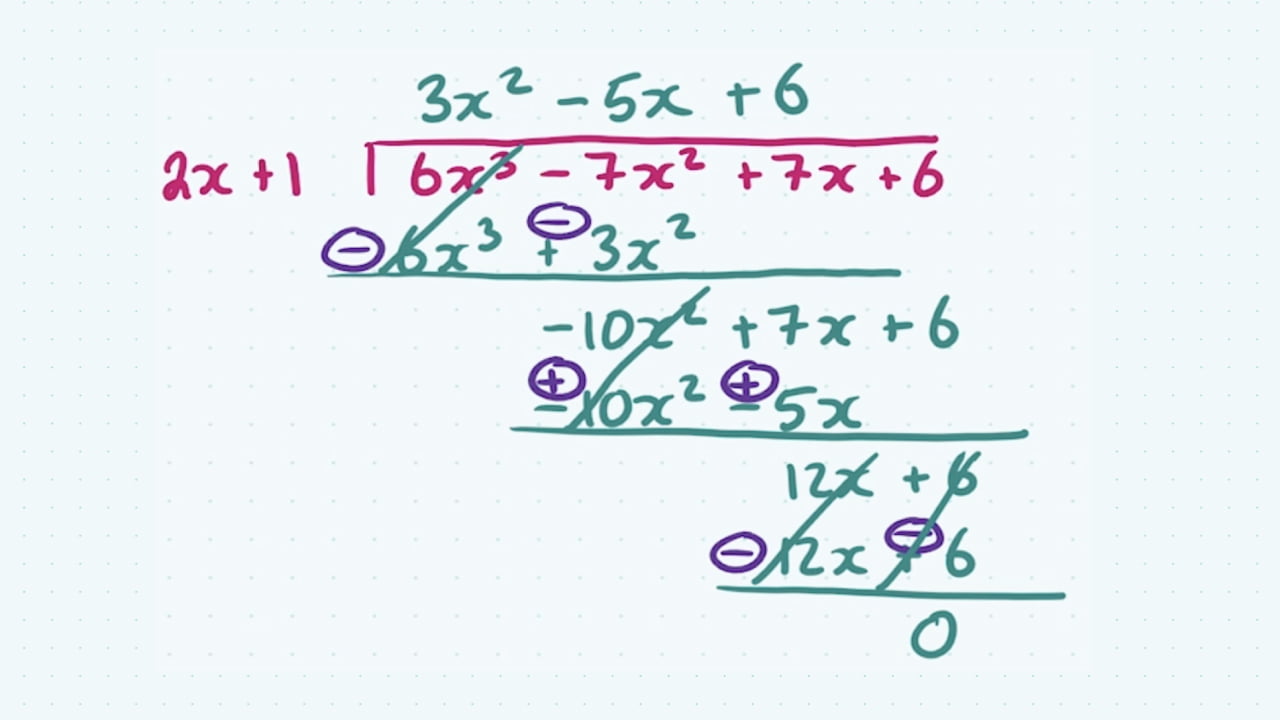 3x² - 5x + 6
2x + 1 | 6x³ - 7x² + 7x + 6
⊖ 6x³ + ⊖ 3x²
-10x² + 7x + 6
⊕ -10x² ⊕ - 5x
12x + 6
⊖ 12x ⊖ + 6
0